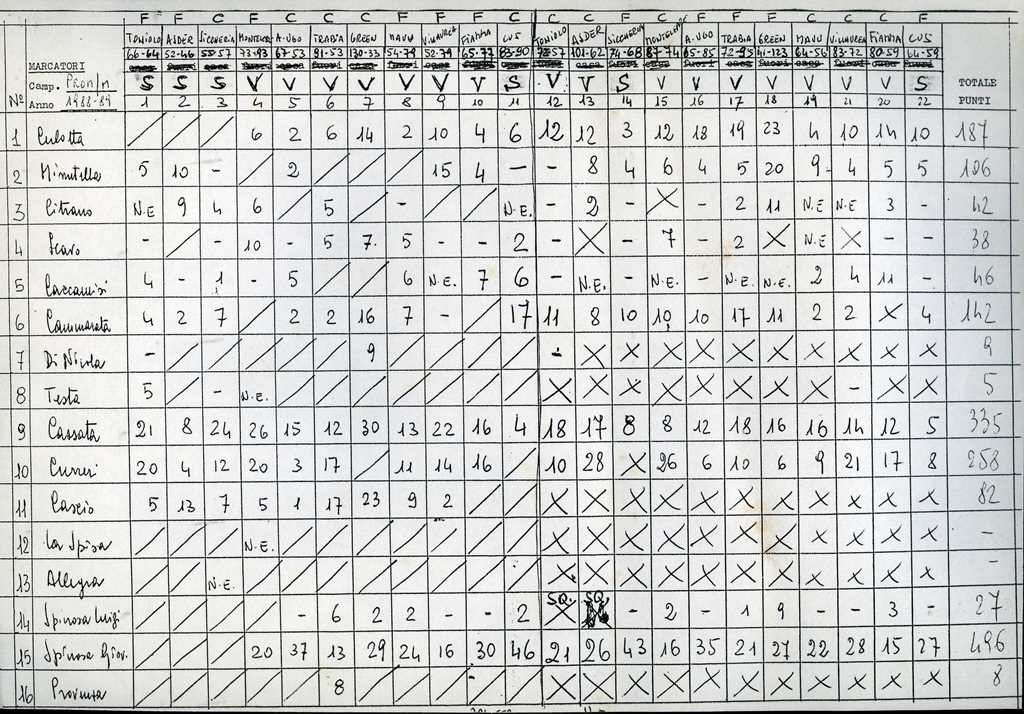 F F C F C C F F F F C C F C F F C C C C F
TONIOLO AIDER SICCHERIA MONTELEPRE A. UGO TRABIA GREEN MANU VILLAUREA FIAMMA CUS TONIOLO AIDER SICCHERIA A. UGO TRABIA GREEN MANU VILLAUREA FIAMMA CUS
66-64 52-46 55-57 73-93 67-53 91-53 130-33 54-79 52-79 65-77 83-90 101-62 74-68 87-74 65-85 72-95 41-123 64-56 83-72 80-59 64-59
MARCATORI
Camp. Prom/M S S S V V V V V V V S V V S V V V V V V V S TOTALE
Nº Anno 1988-89 1 2 3 4 5 6 7 8 9 10 11 12 13 14 15 16 17 18 19 21 20 22 PUNTI
1 Culotta / / / 6 2 6 14 2 10 4 6 12 12 3 12 18 19 23 4 10 14 10 187
2 Minutella 5 10 - / 2 / / / 15 4 - - 8 4 6 4 5 20 9 4 5 5 106
3 Citrano N.E 9 4 6 / 5 / - / / N.E. - 2 - X - 2 11 N.E N.E 3 - 42
4 Scavo - / - 10 - 5 7 5 - - 2 - X - 7 - 2 X N.E X - - 38
5 Caccamisi 4 - 1 - 5 / / 6 N.E. 7 6 - N.E. - N.E. - N.E. N.E. 2 4 11 - 46
6 Cammarata 4 2 7 / 2 2 16 7 - / 17 11 8 10 10 10 17 11 2 2 X 4 142
7 Di Nicola - / / / / / 9 / / / / - X X X X X X X X X X 9
8 Testa 5 / - N.E. / / / / / / / X X X X X X X X - X X 5
9 Cassata 21 8 24 26 15 12 30 13 22 16 4 18 17 8 8 12 18 16 16 14 12 5 335
10 Cuzzi 20 4 12 20 3 17 / 11 14 16 / 10 28 X 26 6 10 6 9 21 17 8 258
11 Cascio 5 13 7 5 1 17 23 9 2 / / X X X X X X X X X X X 82
12 La Spisa / / / N.E. / / / / / / / X X X X X X X X X X X -
13 Allegra / / N.E. / / / / / / / / X X X X X X X X X X X
14 Spinosa Luigi / / / / - 6 2 2 - - 2 SQ. X SQ. - 2 - 1 9 - - 3 - 27
15 Spinosa Giov. / / / 20 37 13 29 24 16 30 46 21 26 43 16 35 21 27 22 28 15 27 496
16 Provenza / / / / / 8 / / / / / X X X X X X X X X X X 8